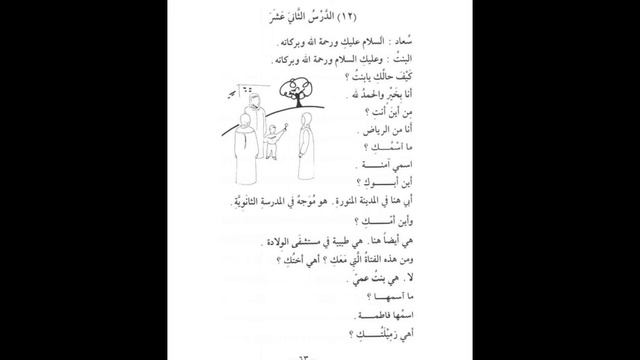 (١٢) الدَّرْسُ الثَّانيَ عَشَرَ
سُعاد : السلام عليكِ ورحمة الله وبركاته .
البنتُ : وعليكِ السلام ورحمة الله وبركاته .
كَيْفَ حالُكِ يابنتُ ؟
أنا بِخَيْرٍ والحمدُ لله .
مِن أينَ أنت ؟
أنا من الرياض .
ما آسْمُكِ ؟
اسمي آمنة .
أين أبوكِ ؟
أبي هنا في المدينة المنورة . هو مُوَجهٌ في المدرسةِ الثانويَّةِ .
وأين أمُّكِ ؟
هي أيضاً هنا . هي طبيبة في مستشفَى الوِلادة .
ومن هذه الفتاةُ الَّتِي مَعَكِ ؟ أهي أختُكِ ؟
لا . هي بنتُ عميِّ .
ما آسمها ؟
اسمُها فاطمة .
أهي زَمِيْلَتُكِ ؟
– ٦٣ –